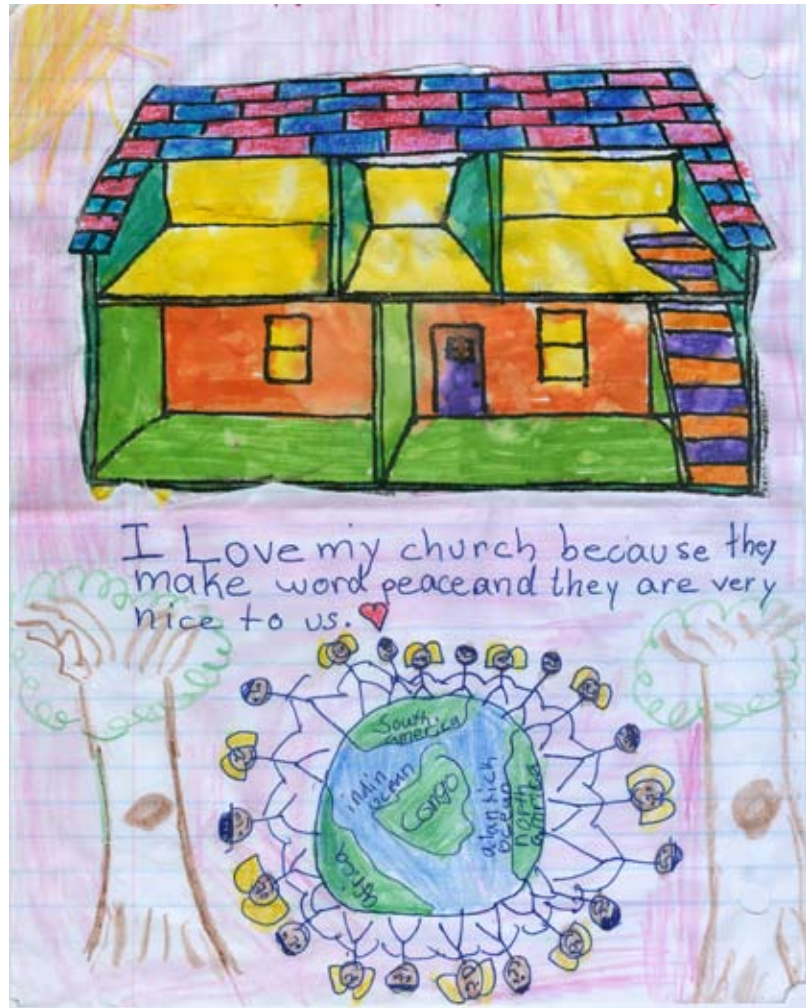 I Love my church because they
make word peace and they are very
nice to us.
South
america
indin
ocean
Congo
atlantick
ocean
north
amirica
africa